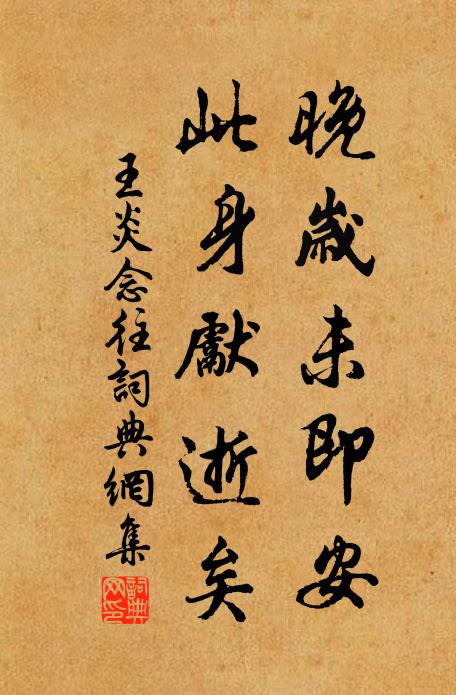 晚歲未即安
此身獻逝矣
王炎念往詞典網集
詞典网印